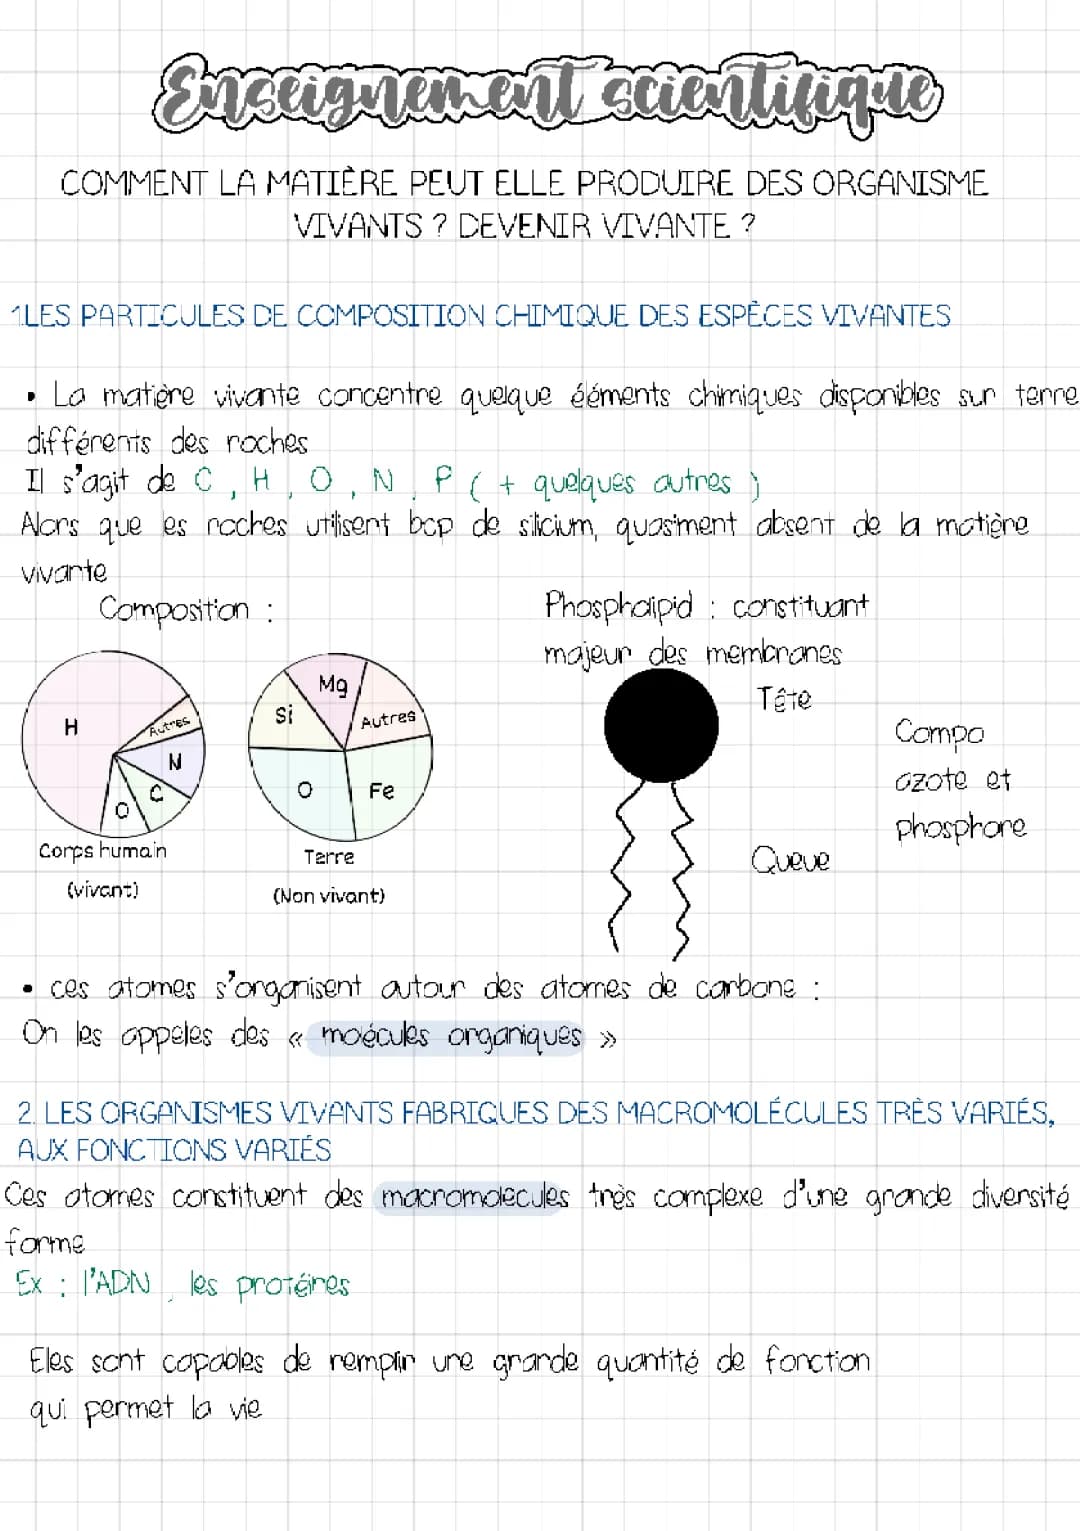 Enseignement scientifique
COMMENT LA MATIÈRE PEUT ELLE PRODUIRE DES ORGANISME
VIVANTS ? DEVENIR VIVANTE ?
1.LES PARTICULES DE COMPOSITION CHIMIQUE DES ESPÈCES VIVANTES
• La matière vivante concentre quelque éléments chimiques disponibles sur terre
différents des roches
Il s'agit de C , H , O , N , P ( + quelques autres )
Alors que les roches utilisent bcp de silicium, quasiment absent de la matière
vivante
Composition :
H
Autres
N
C
O
Corps humain
(vivant)
Mg
Si
Autres
O
Fe
Terre
(Non vivant)
Phospholipid : constituant
majeur des membranes
Tête
Queue
Compo
azote et
phosphore
• ces atomes s'organisent autour des atomes de carbone :
On les appeles des « molécules organiques »
2. LES ORGANISMES VIVANTS FABRIQUES DES MACROMOLÉCULES TRÈS VARIÉS,
AUX FONCTIONS VARIÉS
Ces atomes constituent des macromolécules très complexe d'une grande diversité
forme
Ex : l'ADN , les protéines
Elles sont capables de remplir une grande quantité de fonction
qui permet la vie